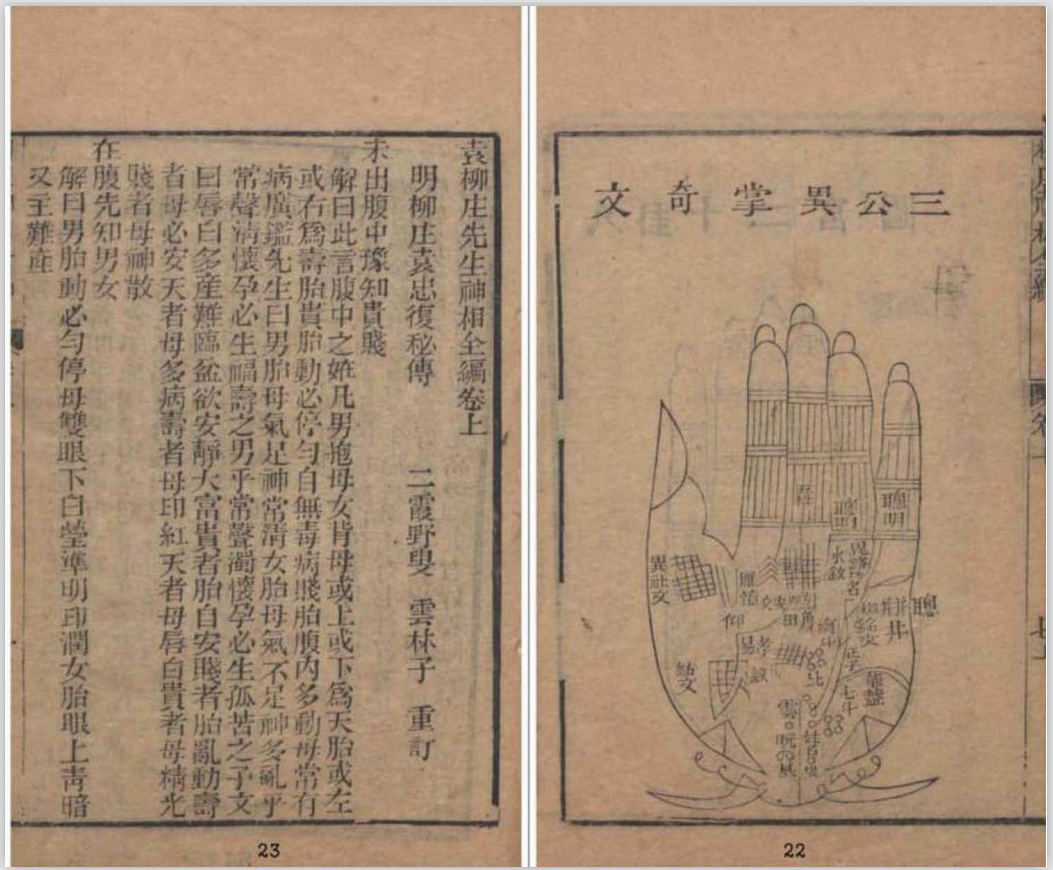 三公異掌奇文
聰明
聰明
異社文
華蓋
七斗
22
袁柳庄先生神相全編卷上
明柳庄袁忠復秘傳　二霞野叟　雲林子　重訂
未出腹中豫知貴賤
解曰此言腹中之姙凡男抱母女背母或上或下爲天胎或左
或右爲壽胎貴胎動必停勻自無毒病賤胎腹內多動母常有
病廣鑑先生曰男胎母氣足神常清女胎母氣不足神多亂乎
常聲清懷孕必生福壽之男乎常聲濁懷孕必生孤苦之子文
曰唇白多産難臨盆欲安靜大富貴者胎自安賤者胎亂動壽
者母必安天者母多病壽者母印紅天者母唇白貴者母精光
賤者母神散
在腹先知男女
解曰男胎動必勻停母雙眼下白瑩準明印潤女胎眼上靑暗
又主難産
23